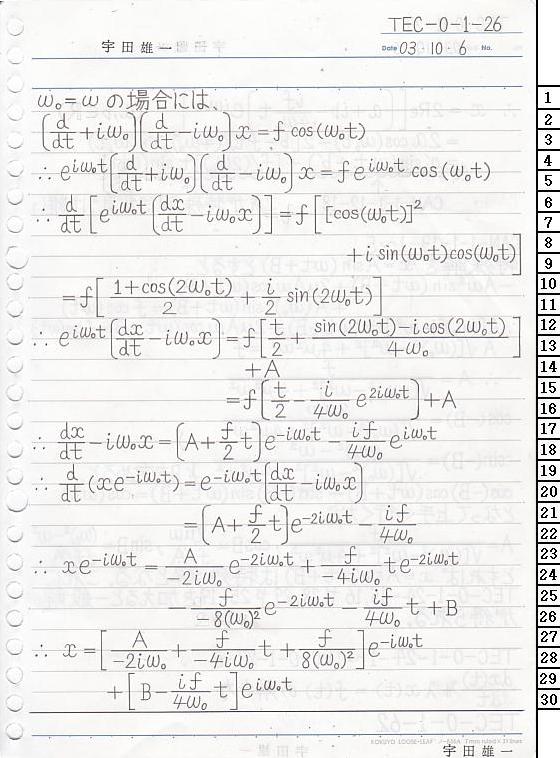 TEC-0-1-26
宇田雄一
Date 03・10・6 No.
ω₀=ω の場合には、
(d/dt+iω₀)(d/dt-iω₀)x=f cos(ω₀t)
∴ e^{iω₀t}(d/dt+iω₀)(d/dt-iω₀)x=fe^{iω₀t}cos(ω₀t)
∴ d/dt[e^{iω₀t}(dx/dt-iω₀x)]=f[[cos(ω₀t)]²
+i sin(ω₀t)cos(ω₀t)]
=f[(1+cos(2ω₀t))/2+i/2 sin(2ω₀t)]
∴ e^{iω₀t}(dx/dt-iω₀x)=f[t/2+(sin(2ω₀t)-i cos(2ω₀t))/4ω₀]
+A
=f(t/2-i/4ω₀ e^{2iω₀t})+A
∴ dx/dt-iω₀x=(A+f/2 t)e^{-iω₀t}-if/4ω₀ e^{iω₀t}
∴ d/dt(xe^{-iω₀t})=e^{-iω₀t}(dx/dt-iω₀x)
=(A+f/2 t)e^{-2iω₀t}-if/4ω₀
∴ xe^{-iω₀t}=A/-2iω₀ e^{-2iω₀t}+f/-4iω₀ te^{-2iω₀t}
-f/-8(ω₀)² e^{-2iω₀t}-if/4ω₀ t+B
∴ x=[A/-2iω₀+f/-4iω₀ t+f/8(ω₀)²]e^{-iω₀t}
+[B-if/4ω₀ t]e^{iω₀t}
宇田雄一
1
2
3
4
5
6
7
8
9
10
11
12
13
14
15
16
17
18
19
20
21
22
23
24
25
26
27
28
29
30